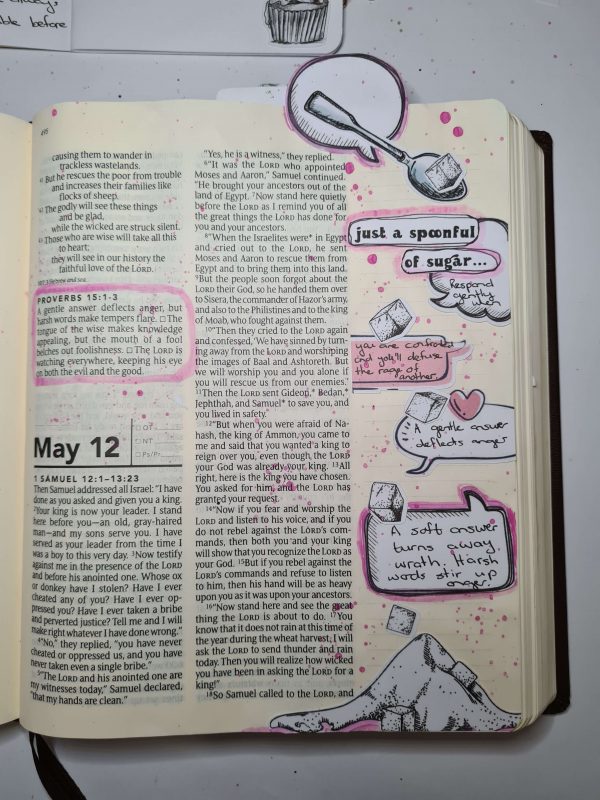 ble before
695
causing them to wander in
trackless wastelands.
But he rescues the poor from trouble
and increases their families like
flocks of sheep.
The godly will see these things
and be glad,
while the wicked are struck silent.
Those who are wise will take all this
to heart;
they will see in our history the
faithful love of the LORD.
PROVERBS 15:1-3
A gentle answer deflects anger, but
harsh words make tempers flare. □ The
tongue of the wise makes knowledge
appealing, but the mouth of a fool
belches out foolishness. □ The LORD is
watching everywhere, keeping his eye
on both the evil and the good.
May 12
□ OT
□ NT
□ Ps/Pr
1 SAMUEL 12:1–13:23
Then Samuel addressed all Israel: "I have
done as you asked and given you a king.
2Your king is now your leader. I stand
here before you—an old, gray-haired
man—and my sons serve you. I have
served as your leader from the time I
was a boy to this very day. 3Now testify
against me in the presence of the LORD
and before his anointed one. Whose ox
or donkey have I stolen? Have I ever
cheated any of you? Have I ever op-
pressed you? Have I ever taken a bribe
and perverted justice? Tell me and I will
make right whatever I have done wrong."
4"No," they replied, "you have never
cheated or oppressed us, and you have
never taken even a single bribe."
5"The LORD and his anointed one are
my witnesses today," Samuel declared,
"that my hands are clean."
"Yes, he is a witness," they replied.
6"It was the LORD who appointed
Moses and Aaron," Samuel continued.
"He brought your ancestors out of the
land of Egypt. 7Now stand here quietly
before the LORD as I remind you of all
the great things the LORD has done for
you and your ancestors.
8"When the Israelites were* in Egypt
and cried out to the LORD, he sent
Moses and Aaron to rescue them from
Egypt and to bring them into this land.
9But the people soon forgot about the
LORD their God, so he handed them over
to Sisera, the commander of Hazor's army,
and also to the Philistines and to the king
of Moab, who fought against them.
10"Then they cried to the LORD again
and confessed, 'We have sinned by turn-
ing away from the LORD and worshiping
the images of Baal and Ashtoreth. But
we will worship you and you alone if
you will rescue us from our enemies.'
11Then the LORD sent Gideon,* Bedan,*
Jephthah, and Samuel* to save you, and
you lived in safety.
12"But when you were afraid of Na-
hash, the king of Ammon, you came to
me and said that you wanted a king to
reign over you, even though the LORD
your God was already your king. 13All
right, here is the king you have chosen.
You asked for him, and the LORD has
granted your request.
14"Now if you fear and worship the
LORD and listen to his voice, and if you
do not rebel against the LORD's com-
mands, then both you and your king
will show that you recognize the LORD as
your God. 15But if you rebel against the
LORD's commands and refuse to listen
to him, then his hand will be as heavy
upon you as it was upon your ancestors.
16"Now stand here and see the great
thing the LORD is about to do. 17You
know that it does not rain at this time of
the year during the wheat harvest. I will
ask the LORD to send thunder and rain
today. Then you will realize how wicked
you have been in asking the LORD for a
king!"
18So Samuel called to the LORD, and
just a spoonful
of sugar...
Respond
gently
when
you are confronted
and you'll defuse
the rage of
another.
A gentle answer
deflects anger
A soft answer
turns away
wrath. Harsh
words stir up
anger.